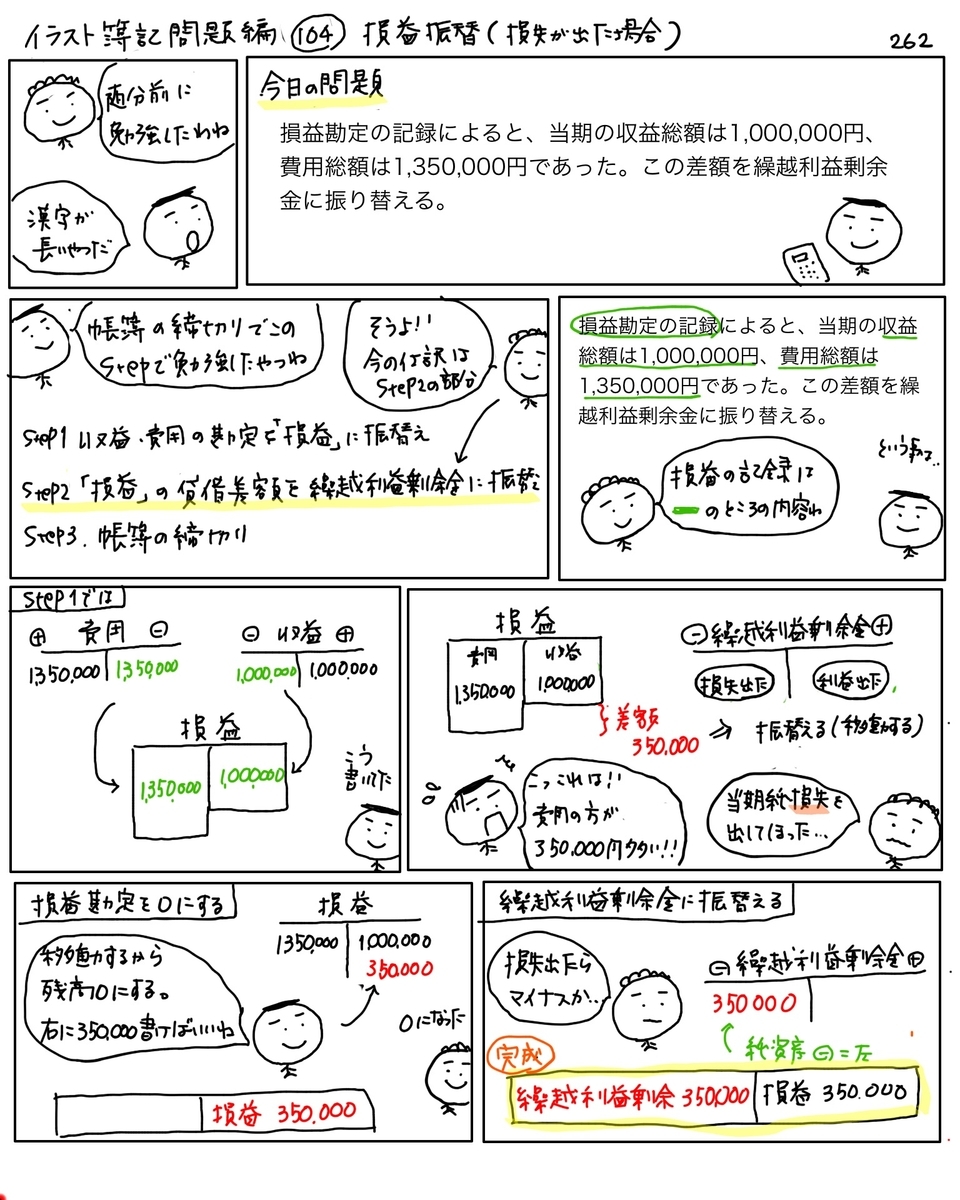 イラスト簿記問題編 104 損益振替(損失が出た場合)
262
随分前に
勉強したわね
漢字が
長いやつだ
今日の問題
損益勘定の記録によると、当期の収益総額は1,000,000円、
費用総額は1,350,000円であった。この差額を繰越利益剰余
金に振り替える。
帳簿の締切りでこの
Stepで勉強したやつね
そうよ!!
今の仕訳は
Step2の部分
Step1 収益・費用の勘定を「損益」に振替え
Step2「損益」の貸借差額を繰越利益剰余金に振替え
Step3. 帳簿の締切り
損益勘定の記録によると、当期の収益
総額は1,000,000円、費用総額は
1,350,000円であった。この差額を繰
越利益剰余金に振り替える。
という事は..
損益の記録は
のところの内容ね
Step1では
⊕ 費用 ⊖
1,350,000 1,350,000
⊖ 収益 ⊕
1,000,000 1,000,000
損益
1,350,000 1,000,000
こう
書いた
損益
費用 収益
1,350,000 1,000,000
差額
350,000
⊖繰越利益剰余金⊕
損失出た 利益出た
⇒ 振替える(移動する)
こっこれは!!
費用の方が
350,000円多い!!
当期純損失を
出してしまった…
損益勘定を0にする
損益
1,350,000 1,000,000
350,000
移動するから
残高0にする。
右に350,000書けばいいね
0になった
損益 350,000
繰越利益剰余金に振替える
損失出たら
マイナスか..
⊖繰越利益剰余金⊕
350000
純資産⊖=左
完成
繰越利益剰余 350,000 損益 350.000